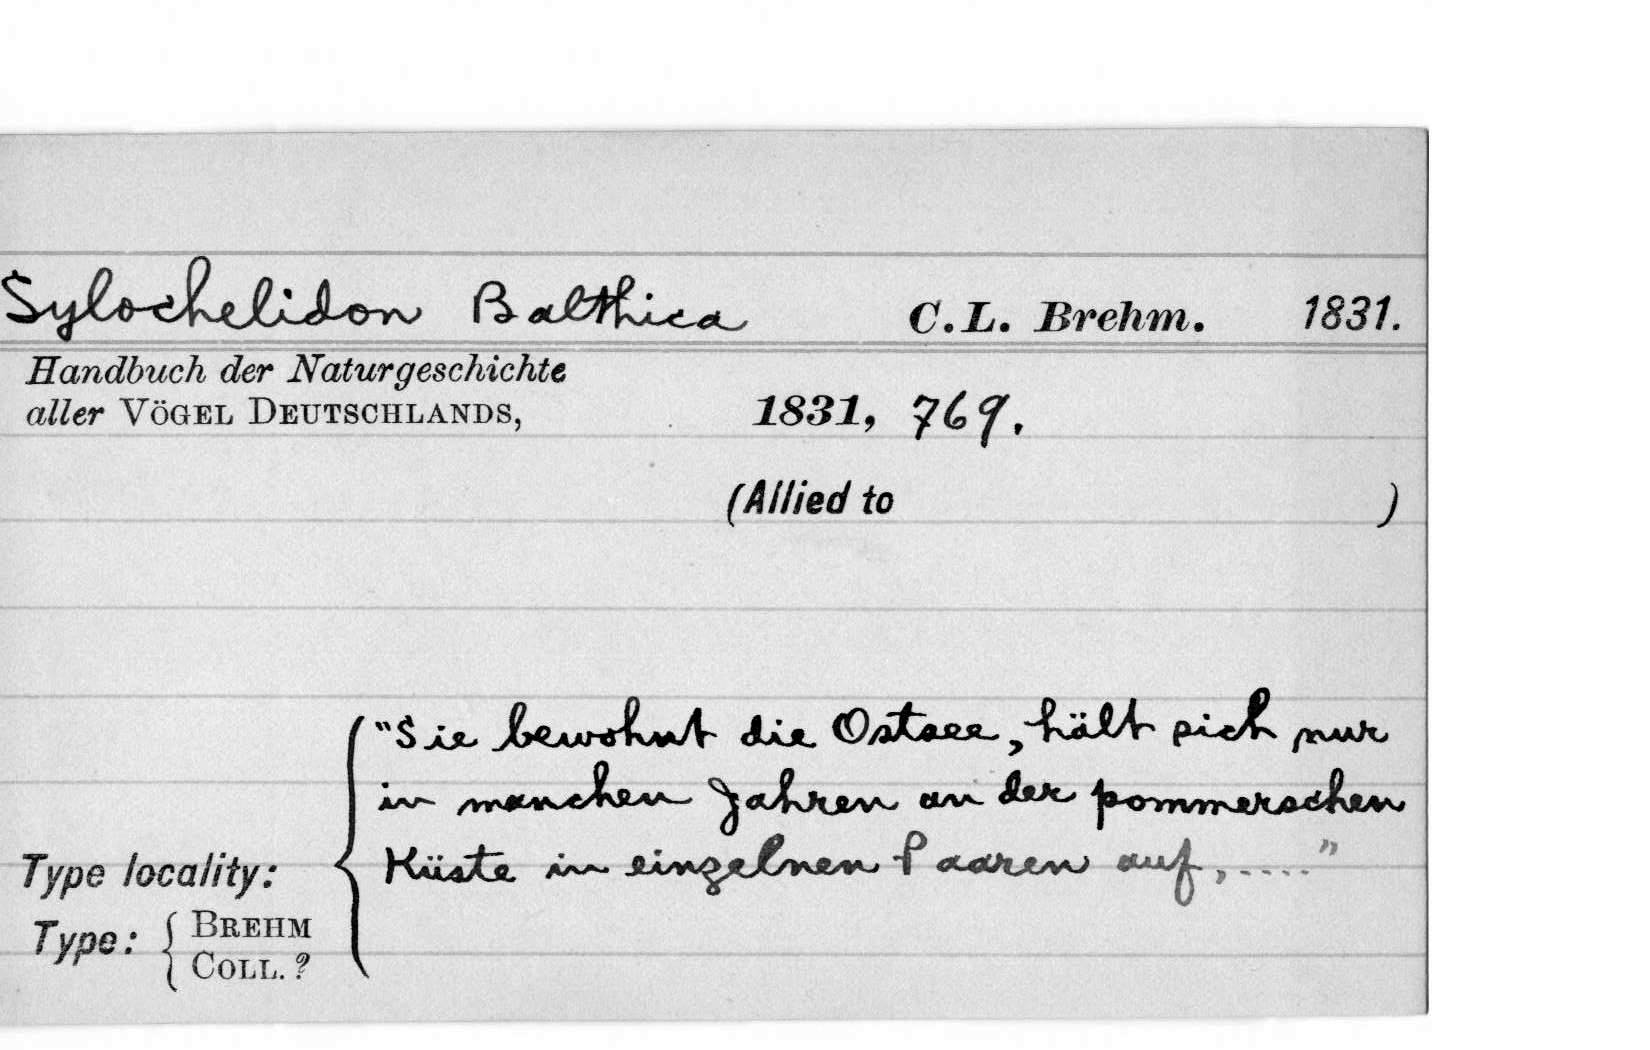 Sylochelidon Balthica C. L. Brehm. 1831.
Handbuch der Naturgeschichte
aller VÖGEL DEUTSCHLANDS, 1831, 769.
(Allied to )
"Sie bewohnt die Ostsee, hält sich nur
in manchen Jahren an der pommerschen
Type locality: Küste in einzelnen Paaren auf, ...."
Type: BREHM
COLL. ?